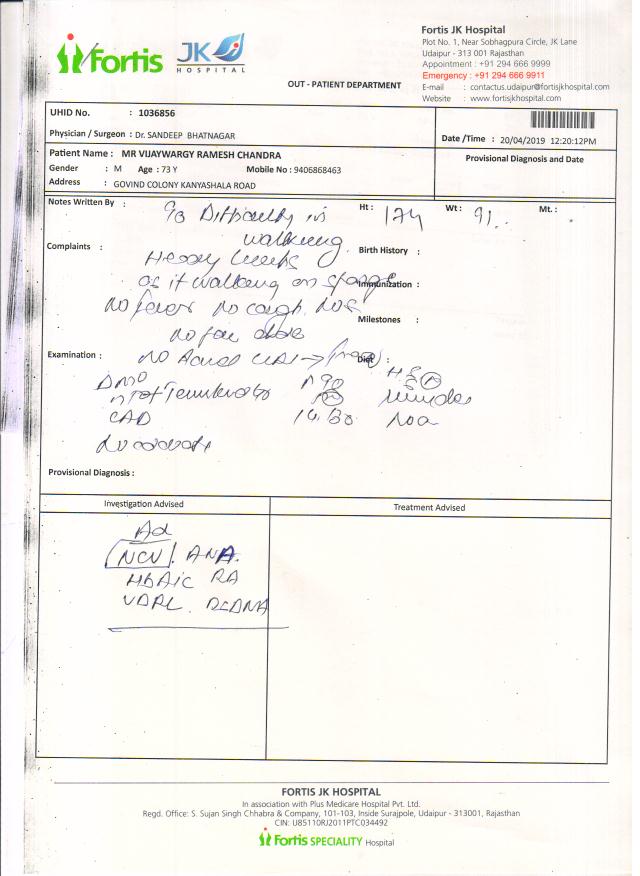 Fortis JK HOSPITAL
Fortis JK Hospital
Plot No. 1, Near Sobhagpura Circle, JK Lane
Udaipur - 313 001 Rajasthan
Appointment : +91 294 666 9999
Emergency : +91 294 666 9911
E-mail : contactus.udaipur@fortisjkhospital.com
Website : www.fortisjkhospital.com
OUT - PATIENT DEPARTMENT
UHID No. : 1036856
Physician / Surgeon : Dr. SANDEEP BHATNAGAR
Date /Time : 20/04/2019 12:20:12PM
Patient Name : MR VIJAYWARGY RAMESH CHANDRA
Provisional Diagnosis and Date
Gender : M Age : 73 Y Mobile No : 9406868463
Address : GOVIND COLONY KANYASHALA ROAD
Notes Written By : Ht : 174 Wt : 91 Mt. :
Difficulty in
walking
Complaints : Birth History :
as if walking on Immunization :
No No cough
Milestones :
No
Examination : No Diet :
DM
CAD
Provisional Diagnosis :
Investigation Advised
Treatment Advised
Ad
NCV. ANA.
HbA1C RA
VDRL. DsDNA
FORTIS JK HOSPITAL
In association with Plus Medicare Hospital Pvt. Ltd.
Regd. Office: S. Sujan Singh Chhabra & Company, 101-103, Inside Surajpole, Udaipur - 313001, Rajasthan
CIN: U85110RJ2011PTC034492
Fortis SPECIALITY Hospital